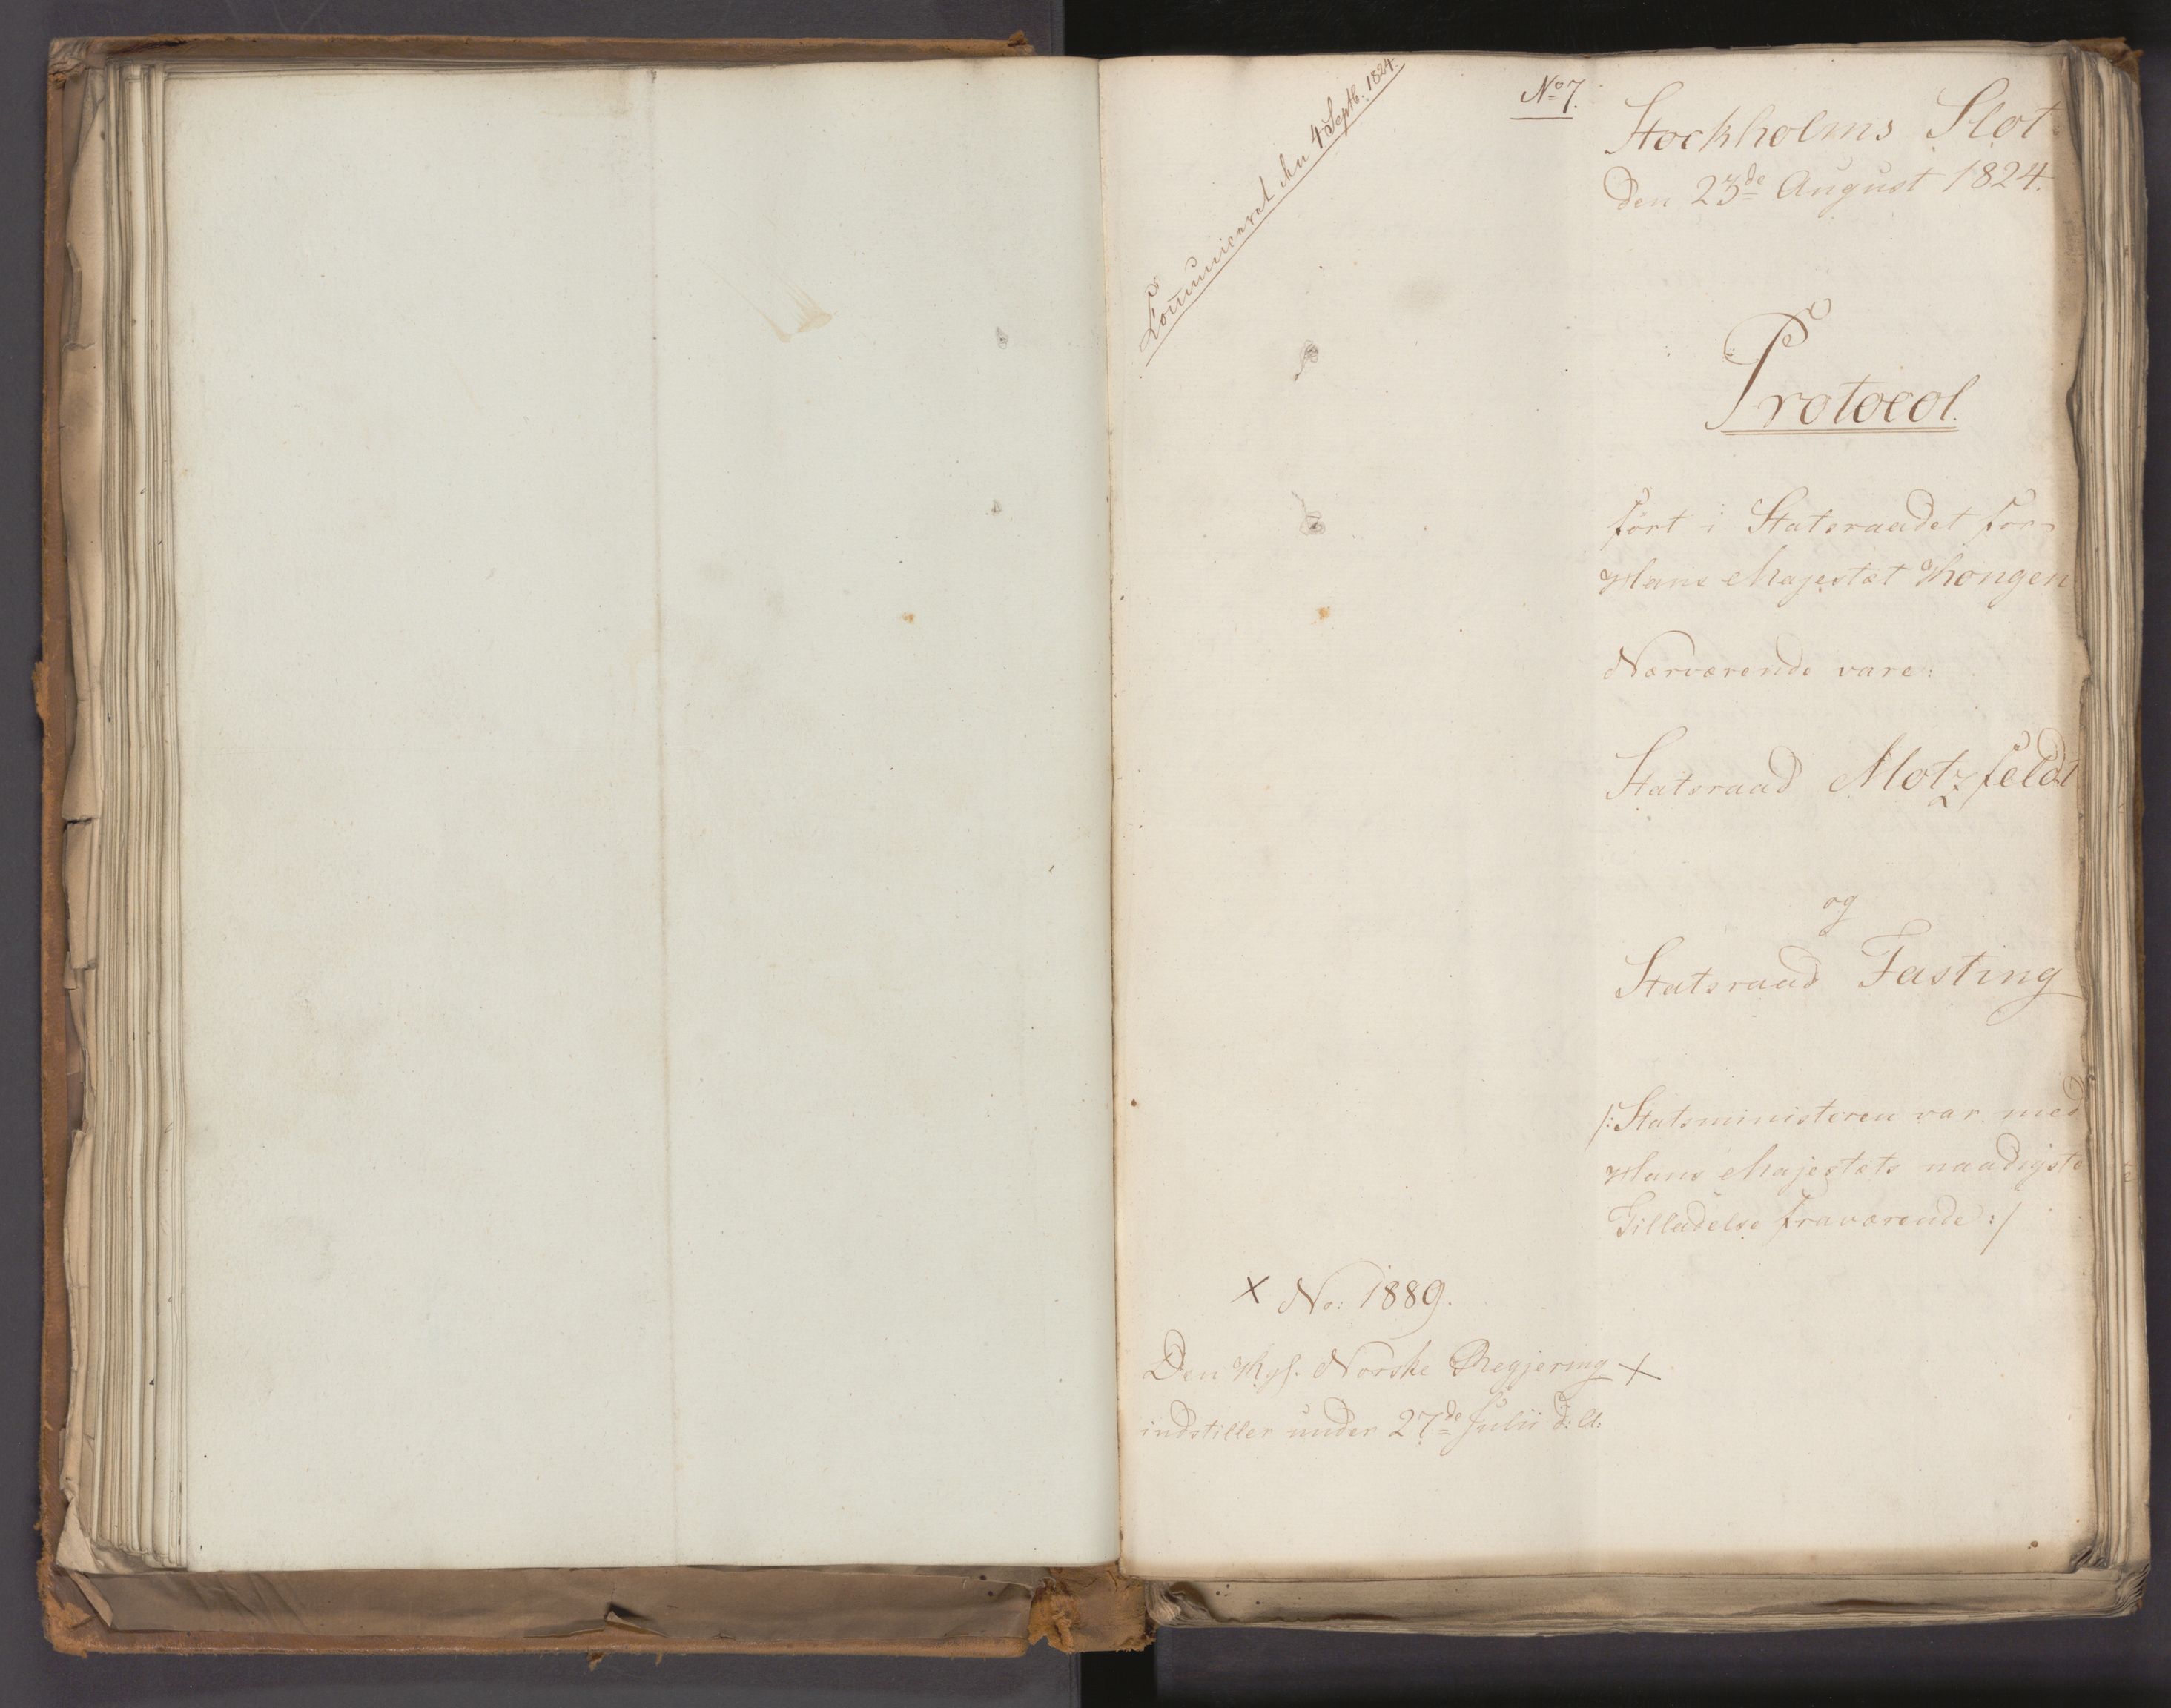 Communiceret den 4 Septb. 1824.
No 7.
Stockholms Slot
den 23de August 1824.
Protocol.
ført i Statsraadet for
Hans Majestæt Kongen
Nærværende vare:
Statsraad Motzfeldt
og
Statsraad Fasting
/: Statsministeren var med
Hans Majestæts naadigste
Tilladelse fraværende :/
x No: 1889.
Den Kgl. Norske Regjering x
indstiller under 27de Julii d: A: